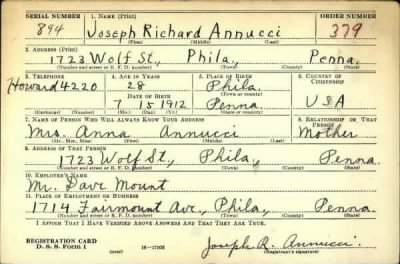 SERIAL NUMBER 1. NAME (Print) ORDER NUMBER
894 Joseph Richard Annucci 379
(First) (Middle) (Last)
2. ADDRESS (Print)
1723 Wolf St., Phila, Penna.
(Number and street or R. F. D. number) (Town) (County) (State)
3. TELEPHONE 4. AGE IN YEARS 5. PLACE OF BIRTH 6. COUNTRY OF CITIZENSHIP
Howard 4220 28 Phila.
DATE OF BIRTH (Town or county)
7 15 1912 Penna USA
(Mo.) (Day) (Yr.) (State or country)
7. NAME OF PERSON WHO WILL ALWAYS KNOW YOUR ADDRESS 8. RELATIONSHIP OF THAT PERSON
Mrs. Anna Annucci Mother
(Mr., Mrs., Miss) (First) (Middle) (Last)
9. ADDRESS OF THAT PERSON
1723 Wolf St., Phila, Penna.
(Number and street or R. F. D. number) (Town) (County) (State)
10. EMPLOYER'S NAME
Mr. Dave Mount
11. PLACE OF EMPLOYMENT OR BUSINESS
1714 Fairmount Ave., Phila, Penna.
(Number and street or R. F. D. number) (Town) (County) (State)
I AFFIRM THAT I HAVE VERIFIED ABOVE ANSWERS AND THAT THEY ARE TRUE.
REGISTRATION CARD
D. S. S. Form 1 (over) 16-17105 Joseph R. Annucci.
(Registrant's signature)